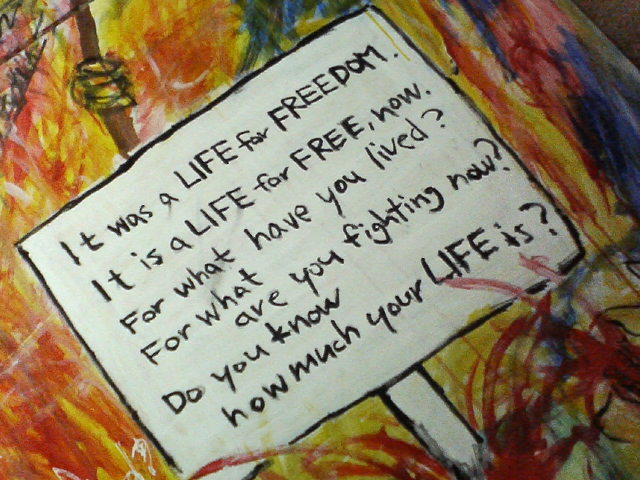 It was a LIFE for FREEDOM.
It is a LIFE for FREE, now.
For what have you lived?
For what
are you fighting now?
Do you know
how much your LIFE is?